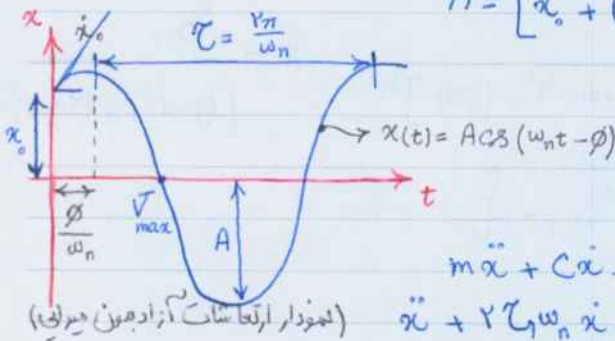 x
ẋ₀
τ = ۲π/ωn
x₀
x(t) = A cos (ωn t - ϕ)
t
ϕ/ωn
Vmax
A
mẍ + Cẋ
(نمودار ارتعاشات آزاد بدون میرایی)
ẍ + ۲ζωn ẋ